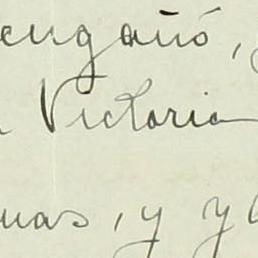 engañó,
Victoria
uas, y y